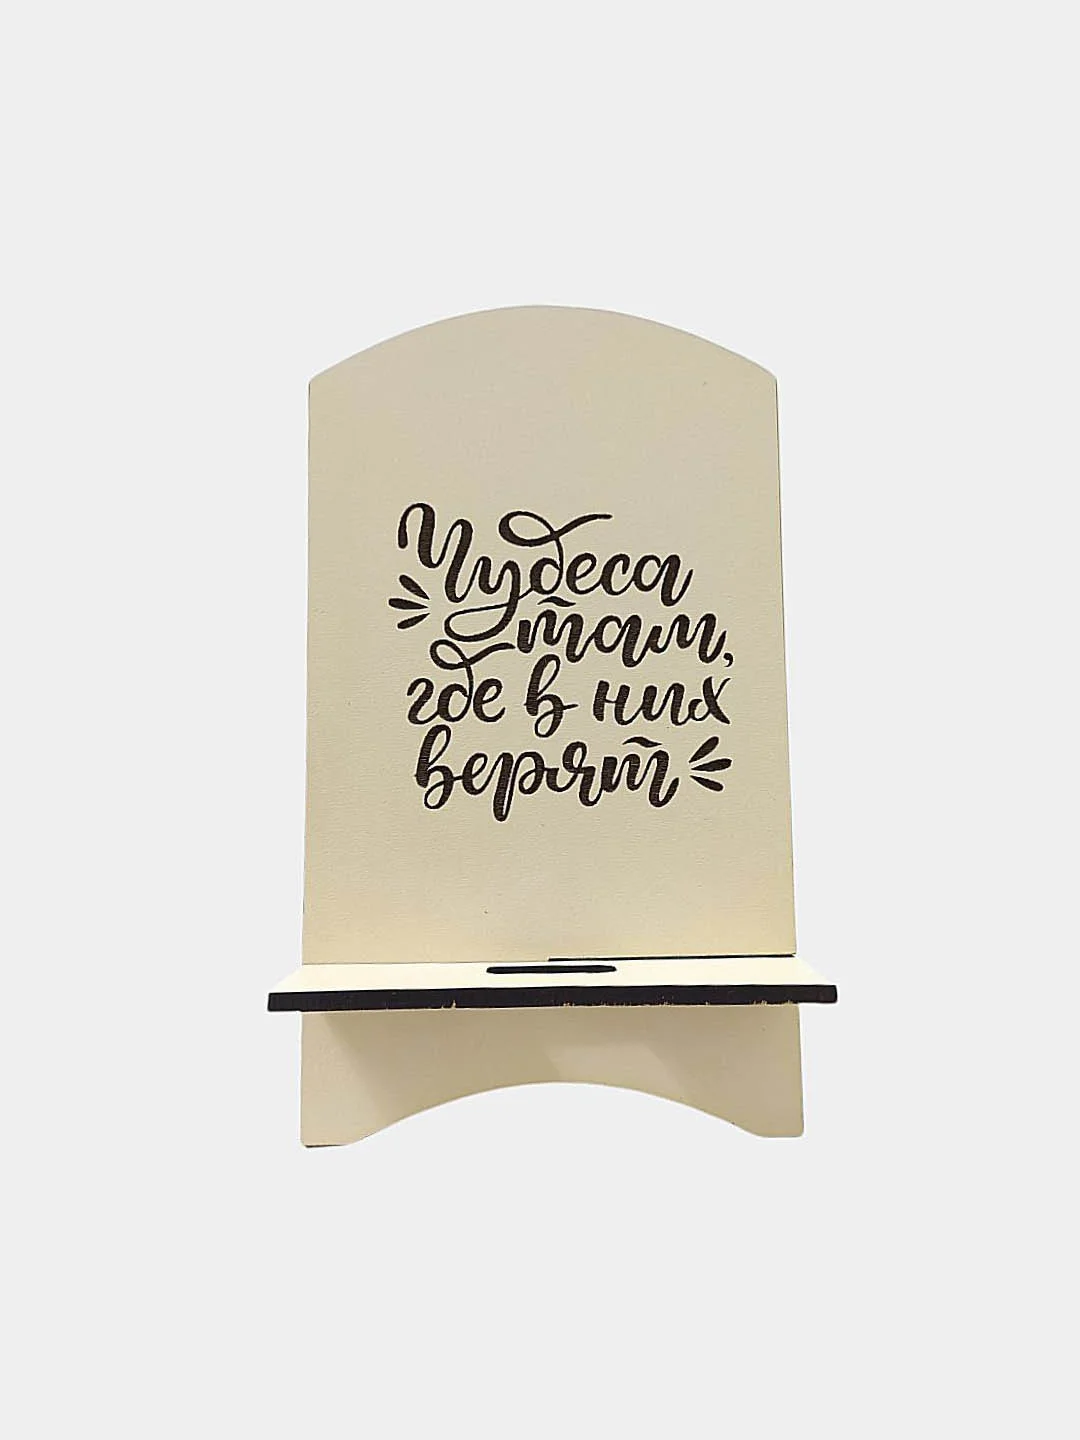 Чудеса
там,
где в них
верят